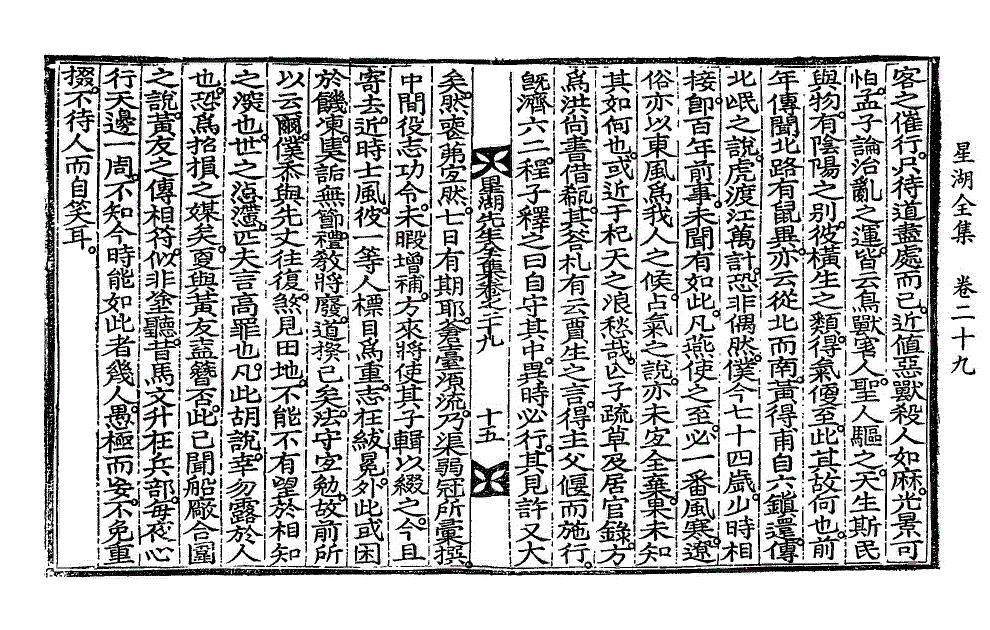 星湖全集 卷二十九
客之催行只待道盡處而已近値惡獸殺人如麻光景可
怕孟子論治亂之運皆云鳥獸害人聖人驅之天生斯民
與物有陰陽之別彼橫生之類得氣便至此其故何也前
年傳聞北路有鼠異亦云從北而南黃得甫自六鎭還傳
北岷之說虎渡江萬計恐非偶然僕今七十四歲少時相
接卽百年前事未聞有如此凡燕使之至必一番風寒遼
俗亦以東風爲我人之候占氣之說亦未宜全棄果未知
其如何也或近于杞天之浪愁哉亾子疏草及居官錄方
爲洪尙書借瓻其答札有云賈生之言得主父偃而施行
旣濟六二程子釋之曰自守其中異時必行其見許又大
星湖先生全集卷之二十九 十五
矣然喪第宜然七日有期耶磐臺源流乃渠弱冠所彙撰
中間役志功令未暇增補方來將使其子輯以綴之今且
寄去近時士風彼一等人標目爲重志在紱冕外此或困
於饑凍輿詬無節禮敎將廢道揆已矣法守宜勉故前所
以云爾僕忝與先丈往復煞見田地不能不有望於相知
之深也世之澆薄匹夫言高罪也凡此胡說幸勿露於人
也恐爲招損之媒矣夏與黃友盍簪否此已聞船廠合圍
之說黃友之傳相符似非塗聽昔馬文升在兵部每夜心
行天邊一周不知今時能如此者幾人愚極而妄不免重
掇不待人而自笑耳